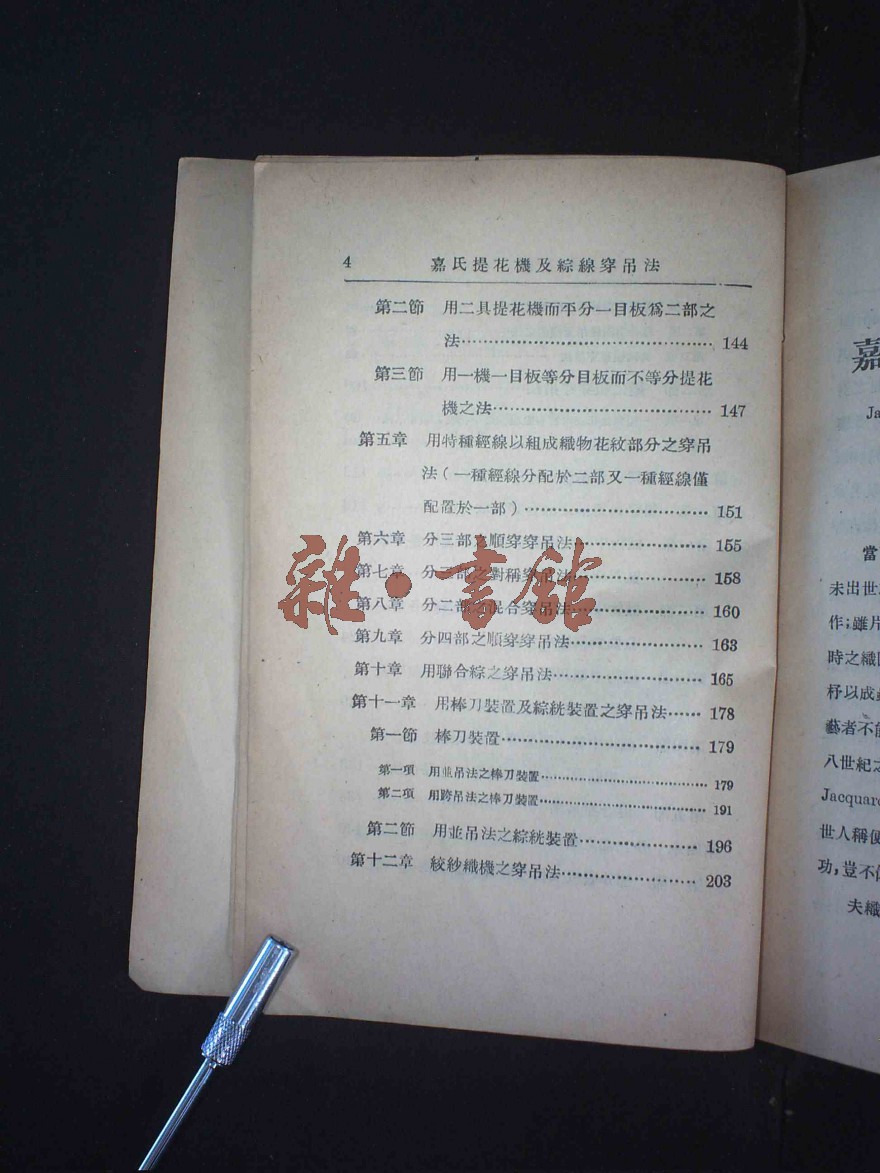 4 嘉氏提花機及綜線穿吊法
第二節 用二具提花機而平分一目板爲二部之
法 144
第三節 用一機一目板等分目板而不等分提花
機之法 147
第五章 用特種經線以組成織物花紋部分之穿吊
法（一種經線分配於二部又一種經線僅
配置於一部） 151
第六章 分三部之順穿穿吊法 155
第七章 分三部之對稱穿吊法 158
第八章 分二部之混合穿吊法 160
第九章 分四部之順穿穿吊法 163
第十章 用聯合綜之穿吊法 165
第十一章 用棒刀裝置及綜絖裝置之穿吊法 178
第一節 棒刀裝置 179
第一項 用並吊法之棒刀裝置 179
第二項 用跨吊法之棒刀裝置 191
第二節 用並吊法之綜絖裝置 196
第十二章 絞紗織機之穿吊法 203
雜·書館
嘉
Ja
當
未出世
作；雖片
時之織
杼以成
藝者不
八世紀之
Jacquar
世人稱便
功，豈不
夫織